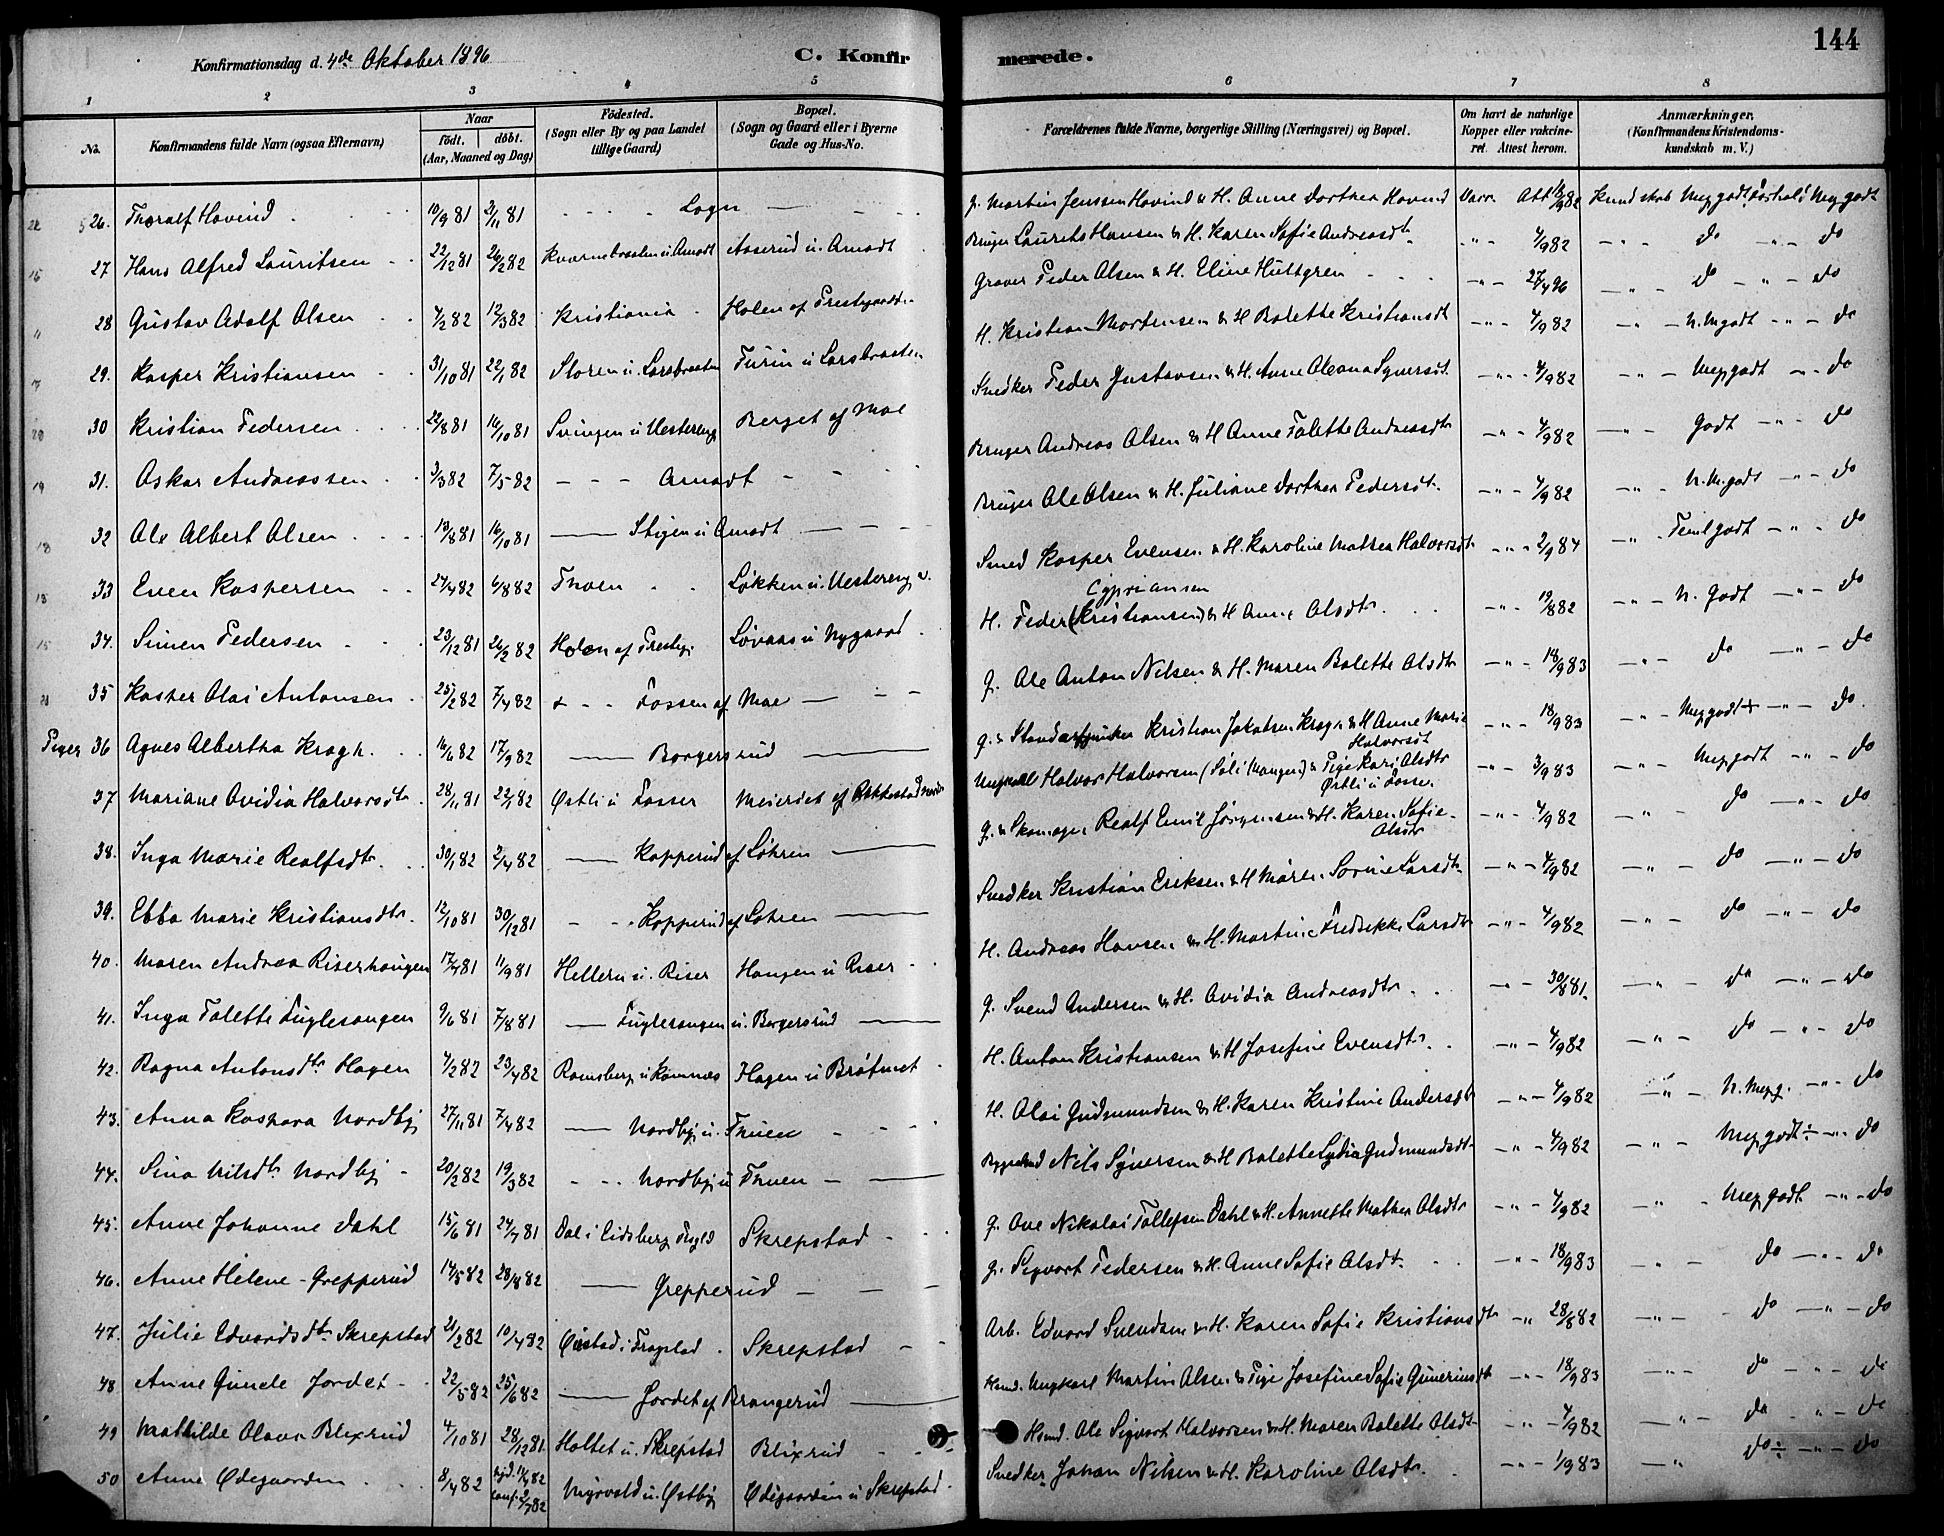 144
Konfirmationsdag d. 4de Oktober 1896
C. Konfirmerede.
1 2 3 4 5 6 7 8
No. Konfirmandens fulde Navn (ogsaa Efternavn) Naar födt. döbt. (Aar, Maaned og Dag) Födested. (Sogn eller By og paa Landet tillige Gaard) Bopæl. (Sogn og Gaard eller i Byerne Gade og Hus-No.) Forældrenes fulde Navne, borgerlige Stilling (Næringsvei) og Bopæl. Om havt de naturlige Kopper eller vakcineret. Attest herom. Anmærkninger. (Konfirmandens Kristendomskundskab m. V.)
26. Thoralf Hovind 10/9 81 2/11 81 G. Martin Jenssen Hovind & H. Anne Dorthea Hovind Vacc. Att Kundskab Meg godt Forhold Meg godt
27 Hans Alfred Lauritsen 22/12 81 26/2 82 Aaserud u. Amodt Bruger Laurits Hansen & H. Karen Sofie Andreasdtr 4/9 82 do do
28 Gustav Adolf Olsen 4/2 82 12/3 82 Kristiania Holen af Prestegaard Graver Peder Olsen & H. Eline Huttgren 27/4 96 do do
29. Kasper Kristiansen 31/10 81 22/1 82 Storen u. Larsbraaten Turin u Larsbraaten H. Kristian Mortensen & H Bolette Kristiansdt 4/9 82 N. M godt do
30 Kristian Pedersen 22/8 81 16/10 81 Svingen u Vestereng Berget af Moe Snedker Peder Gustavsen & H. Anne Oleana Syversdt. 4/9 82 Meg godt do
31. Oskar Andreassen 3/3 82 7/5 82 Amodt Bruger Andreas Olsen & H Anne Tolette Andreasdtr 4/9 82 Godt do
32 Ole Albert Olsen 13/8 81 16/10 81 Stigen u Amodt Bruger Ole Olsen & H. Juliane Dorthea Pedersdt. 4/9 82 N. M. godt do
33 Even Kaspersen 24/4 82 6/8 82 Thoen Løkken u. Vestereng Smed Kasper Evensen & H. Karoline Mathea Halvorsdtr 2/9 84 Teml godt do
34. Simen Pedersen 23/12 81 26/2 82 Holen af Presteg. Løvaas u Nygaard H. Peder (Kristiansen) Cyprianson & H Anne Olsdtr. 19/8 82 N. Godt do
35 Kasper Olai Antonsen 25/2 82 7/4 82 Fossen af Moe G. Ole Anton Nilsen & H. Maren Bolette Olsdtr 18/9 83 do do
Piger 36 Agnes Albertha Kragh. 16/6 82 17/9 82 Borgersrud G. & Standartjunker Kristian Jakobsen Kragh & H Anne Marie Halvorsdt 18/9 83 Meg godt + do
37 Mariane Ovidia Halvorsdtr. 28/11 81 22/1 82 Østli u Fosser Meieriet af Askkestad Ungkarl Halvor Halvorsen & Pige Kari Olsdtr Østli u Fosser. 3/9 83 Meg godt do
38. Inga Marie Realfsdtr. 30/1 82 2/4 82 Kopperud af Løhren G. & Skomager Realf Emil Jörgensen & H. Karen Sofie Olsdtr 4/9 82 do do
39. Ebba Marie Kristiansdtr. 12/10 81 30/12 81 Kopperud af Løhren Snedker Kristian Eriksen & H Maren Sovie Larsdtr. 4/9 82 do do
40. Maren Andrea Riserhaugen 17/7 81 11/9 81 Hellern u. Riser Haugen u Riser H. Andreas Hansen & H. Martine Fredrikke Larsdtr 4/9 82 do do
41. Inga Tolette Fuglesangen 9/6 81 7/8 81 Fuglesangen u. Borgersrud G. Svend Andersen & H. Ovidia Andreasdtr. 30/8 81 do do
42. Ragna Antonsdtr Hagen 4/2 82 23/4 82 Ramsberg u Komnæs Hagen u Bråtnet H. Anton Kristiansen & H Josefine Evensdtr. 4/9 82 do do
43. Anna Kaspara Nordby 27/11 81 7/4 82 Nordby u. Thuen H. Olai Gudmundsen & H. Karen Kristine Andersdtr 4/9 82 N. Meg g. do
44. Sina Nilsdtr Nordby 20/2 82 19/3 82 Nordby u Thuen Nils Syversen & H Bolette Lydia Gudmundsdtr 4/9 82 Meg godt ÷ do
45. Anne Johanne Dahl 15/6 81 24/7 81 Dal i Eidsberg Skrepstad G. Ove Nikolai Tollefsen Dahl & H. Annette Mathea Olsdtr 4/9 82 Meg godt do
46. Anne Helene Grepperud 14/5 82 28/8 82 Grepperud G. Sigvart Pedersen & H. Anne Sofie Olsdt. 18/9 83 do do
47. Julie Edvardsdtr Skrepstad 21/2 82 10/4 82 Øistad i Trøgstad Skrepstad Arb. Edvard Svendsen & H. Karen Sofie Kristiansdtr 28/8 82 do do
48 Anne Gunde Jordet 22/5 82 25/6 82 Jordet af Brangerud Husmd. Ungkarl Martin Olsen & Pige Josefine Sofie Gunerinsdt 18/9 83 do do
49 Mathilde Olava Blixrud 4/10 81 28/12 81 Holtet u. Skrepstad Blixrud Husmd. Ole Sigvart Halvorsen & H. Maren Bolette Olsdtr 4/9 82 do do
50 Anne Ødegaarden 8/4 82 Myrvold u. Østby Ødegaarden u Skrepstad Snedker Johan Nilsen & H. Karoline Olsdtr. 1/9 83 do ÷ do